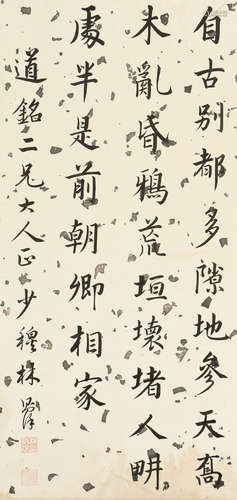 自古别都多隙地參天喬
木亂昏鴉荒垣壞堵人畊
處半是前朝卿相家
道銘二兄大人正少穆